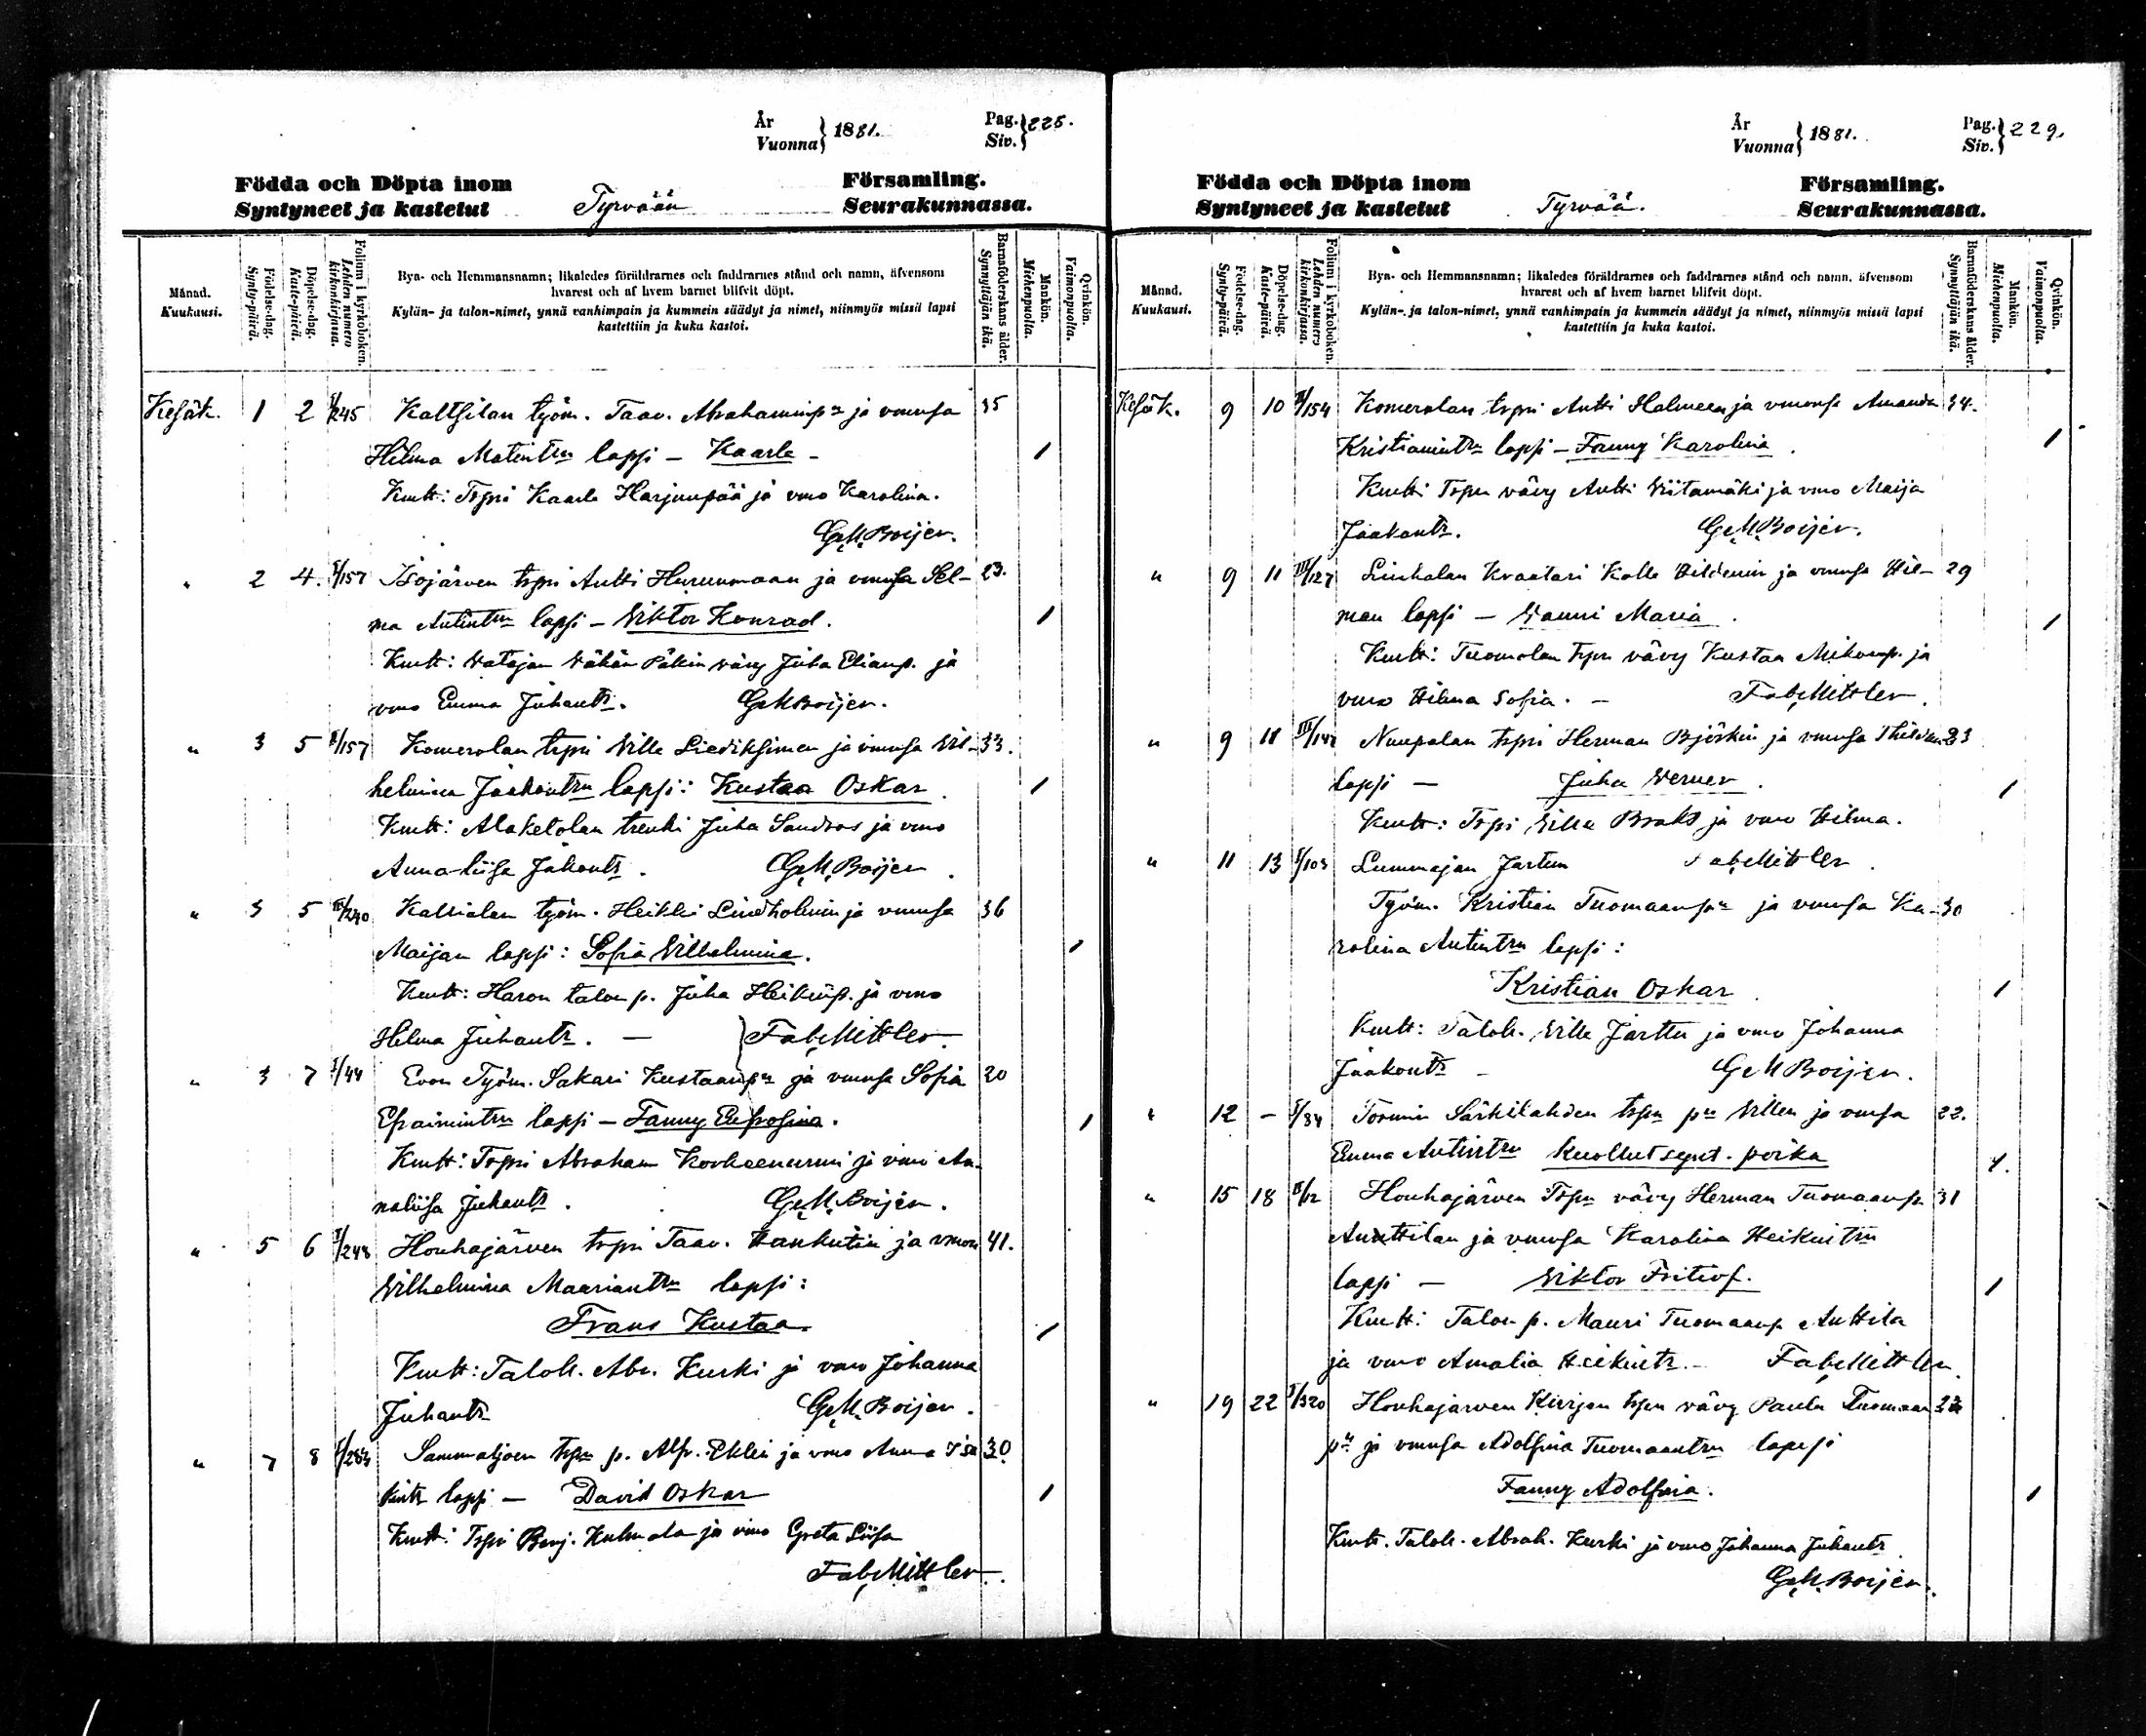 År
Vuonna } 1881.
Pag.
Siv. } 228.
Födda och Döpta inom
Syntyneet ja kastetut
Tyrvään
Församling.
Seurakunnassa.
Månad.
Kuukausi.
Födelse-dag.
Synty-päivä.
Döpelse-dag.
Kaste-päivä.
Folium i kyrkoboken.
Lehden numero
kirkonkirjassa.
Bya- och Hemmansnamn; likaledes föräldrarnes och faddrarnes stånd och namn, äfvensom
hvarest och af hvem barnet blifvit döpt.
Kylän- ja talon-nimet, ynnä vanhimpain ja kummein säädyt ja nimet, niinmyös missä lapsi
kastettiin ja kuka kastoi.
Barnaföderskans ålder.
Synnyttäjän ikä.
Mankön.
Miehenpuolta.
Qvinkön.
Vaimonpuolta.
Kesäk. 1 2 I/245 Kaltsilan työm. Taav. Abrahaminpn ja vmonsa 35
Hilma Matintrn lapsi – Kaarle – 1
Kmtt: Tspri Kaarle Harjunpää ja vmo Karolina.
G.M. Boijer.
" 2 4. I/157 Isojärven tspri Antti Huruumaan ja vmonsa Sel- 23.
ma Antintrn lapsi – Viktor Konrad. 1
Kmtt: Vatajan Vähän Päkin vävy Juha Elianp. ja
vmo Emma Juhantr. G.M. Boijer.
" 3 5 II/157 Komerolan tspri Ville Liediksimen ja vmonsa Vil- 33.
helmina Jaakontrn lapsi: Kustaa Oskar. 1
Kmtt: Alaketolan trenki Juha Sandros ja vmo
Anna-liisa Jakontr. G.M. Boijer.
" 3 5 III/240 Kallialan työm. Heikki Lindholmin ja vmonsa 36
Maijan lapsi: Sofia Vilhelmina. 1
Kmtt: Haron talon p. Juha Heikinp. ja vmo
Helma Juhantr. – Fab. Mittler.
" 3 7 I/44 Evon Työm. Sakari Kustaanpn ja vmonsa Sofia 20
Epraimintrn lapsi – Fanny Eufrosina. 1
Kmtt: Tspri Abraham Korkeenurmi ja vmo An-
naliisa Juhantr. G.M. Boijer.
" 5 6 I/248 Houhajärven tspri Taav. Hankutin ja vmon 41.
Vilhelmina Maariantrn lapsi:
Frans Kustaa. 1
Kmtt: Talok. Abr. Kurki ja vmo Johanna
Juhantr G.M. Boijer.
" 7 8 I/283 Sammaljoen tspn p. Alfr. Eklin ja vmo Anna Isa 30.
kintr lapsi – David Oskar 1
Kmtt: Tspri Benj. Kulmala ja vmo Greta Liisa
Fab. Mittler.
År
Vuonna } 1881.
Pag.
Siv. } 229.
Födda och Döpta inom
Syntyneet ja kastetut
Tyrvää.
Församling.
Seurakunnassa.
Månad.
Kuukausi.
Födelse-dag.
Synty-päivä.
Döpelse-dag.
Kaste-päivä.
Folium i kyrkoboken.
Lehden numero
kirkonkirjassa.
Bya- och Hemmansnamn; likaledes föräldrarnes och faddrarnes stånd och namn, äfvensom
hvarest och af hvem barnet blifvit döpt.
Kylän- ja talon-nimet, ynnä vanhimpain ja kummein säädyt ja nimet, niinmyös missä lapsi
kastettiin ja kuka kastoi.
Barnaföderskans ålder.
Synnyttäjän ikä.
Mankön.
Miehenpuolta.
Qvinkön.
Vaimonpuolta.
Kesäk. 9 10 II/154 Komerolan tspri Antti Halmeen ja vmonsa Amanda 34.
Kristianintrn lapsi – Fanny Karolina. 1
Kmtt: Tspn vävy Antti Viitamäki ja vmo Maija
Jaakontr. G.M. Boijer.
" 9 11 III/127 Liuhalan Kraatari Kalle Hildenin ja vmonsa Hil- 29
man lapsi – Vanni Maria. 1
Kmtt: Tuomolan tspn vävy Kustaa Mikonp. ja
vmo Hilma Sofia. – Fab. Mittler.
" 9 11 III/147 Nuupalan tspri Herman Björkin ja vmonsa Thildan 23
lapsi – Juha Verner. 1
Kmtt: Tspri Ville Braks ja vmo Hilma.
" 11 13 I/103 Lummajan Jartun Fab. Mittler.
Työm. Kristian Tuomaanpn ja vmonsa Ka- 30
rolina Antintrn lapsi:
Kristian Oskar. 1
Kmtt: Talok. Ville Jarttu ja vmo Johanna
Jaakontr – G.M. Boijer.
" 12 – I/84 Tormin Särkilahden tspn pn Villen ja vmonsa 22.
Emma Antintrn Kuollut synt. poika 1.
" 15 18 II/12 Houhajärven Tspn vävy Herman Tuomaanp. 31
Anttilan ja vmonsa Karolina Heikintrn
lapsi – Viktor Fritiof. 1
Kmtt: Talon p. Mauri Tuomaanp Anttila
ja vmo Amalia Heikintr. – Fab. Mittler.
" 19 22 I/320 Houhajärven Kurjen tspn vävy Paulu Tuomaan 22
pn ja vmonsa Adolfina Tuomaantrn lapsi
Fanny Adolfina. 1
Kmtt. Talok. Abrah. Kurki ja vmo Johanna Juhantr
G.M. Boijer.